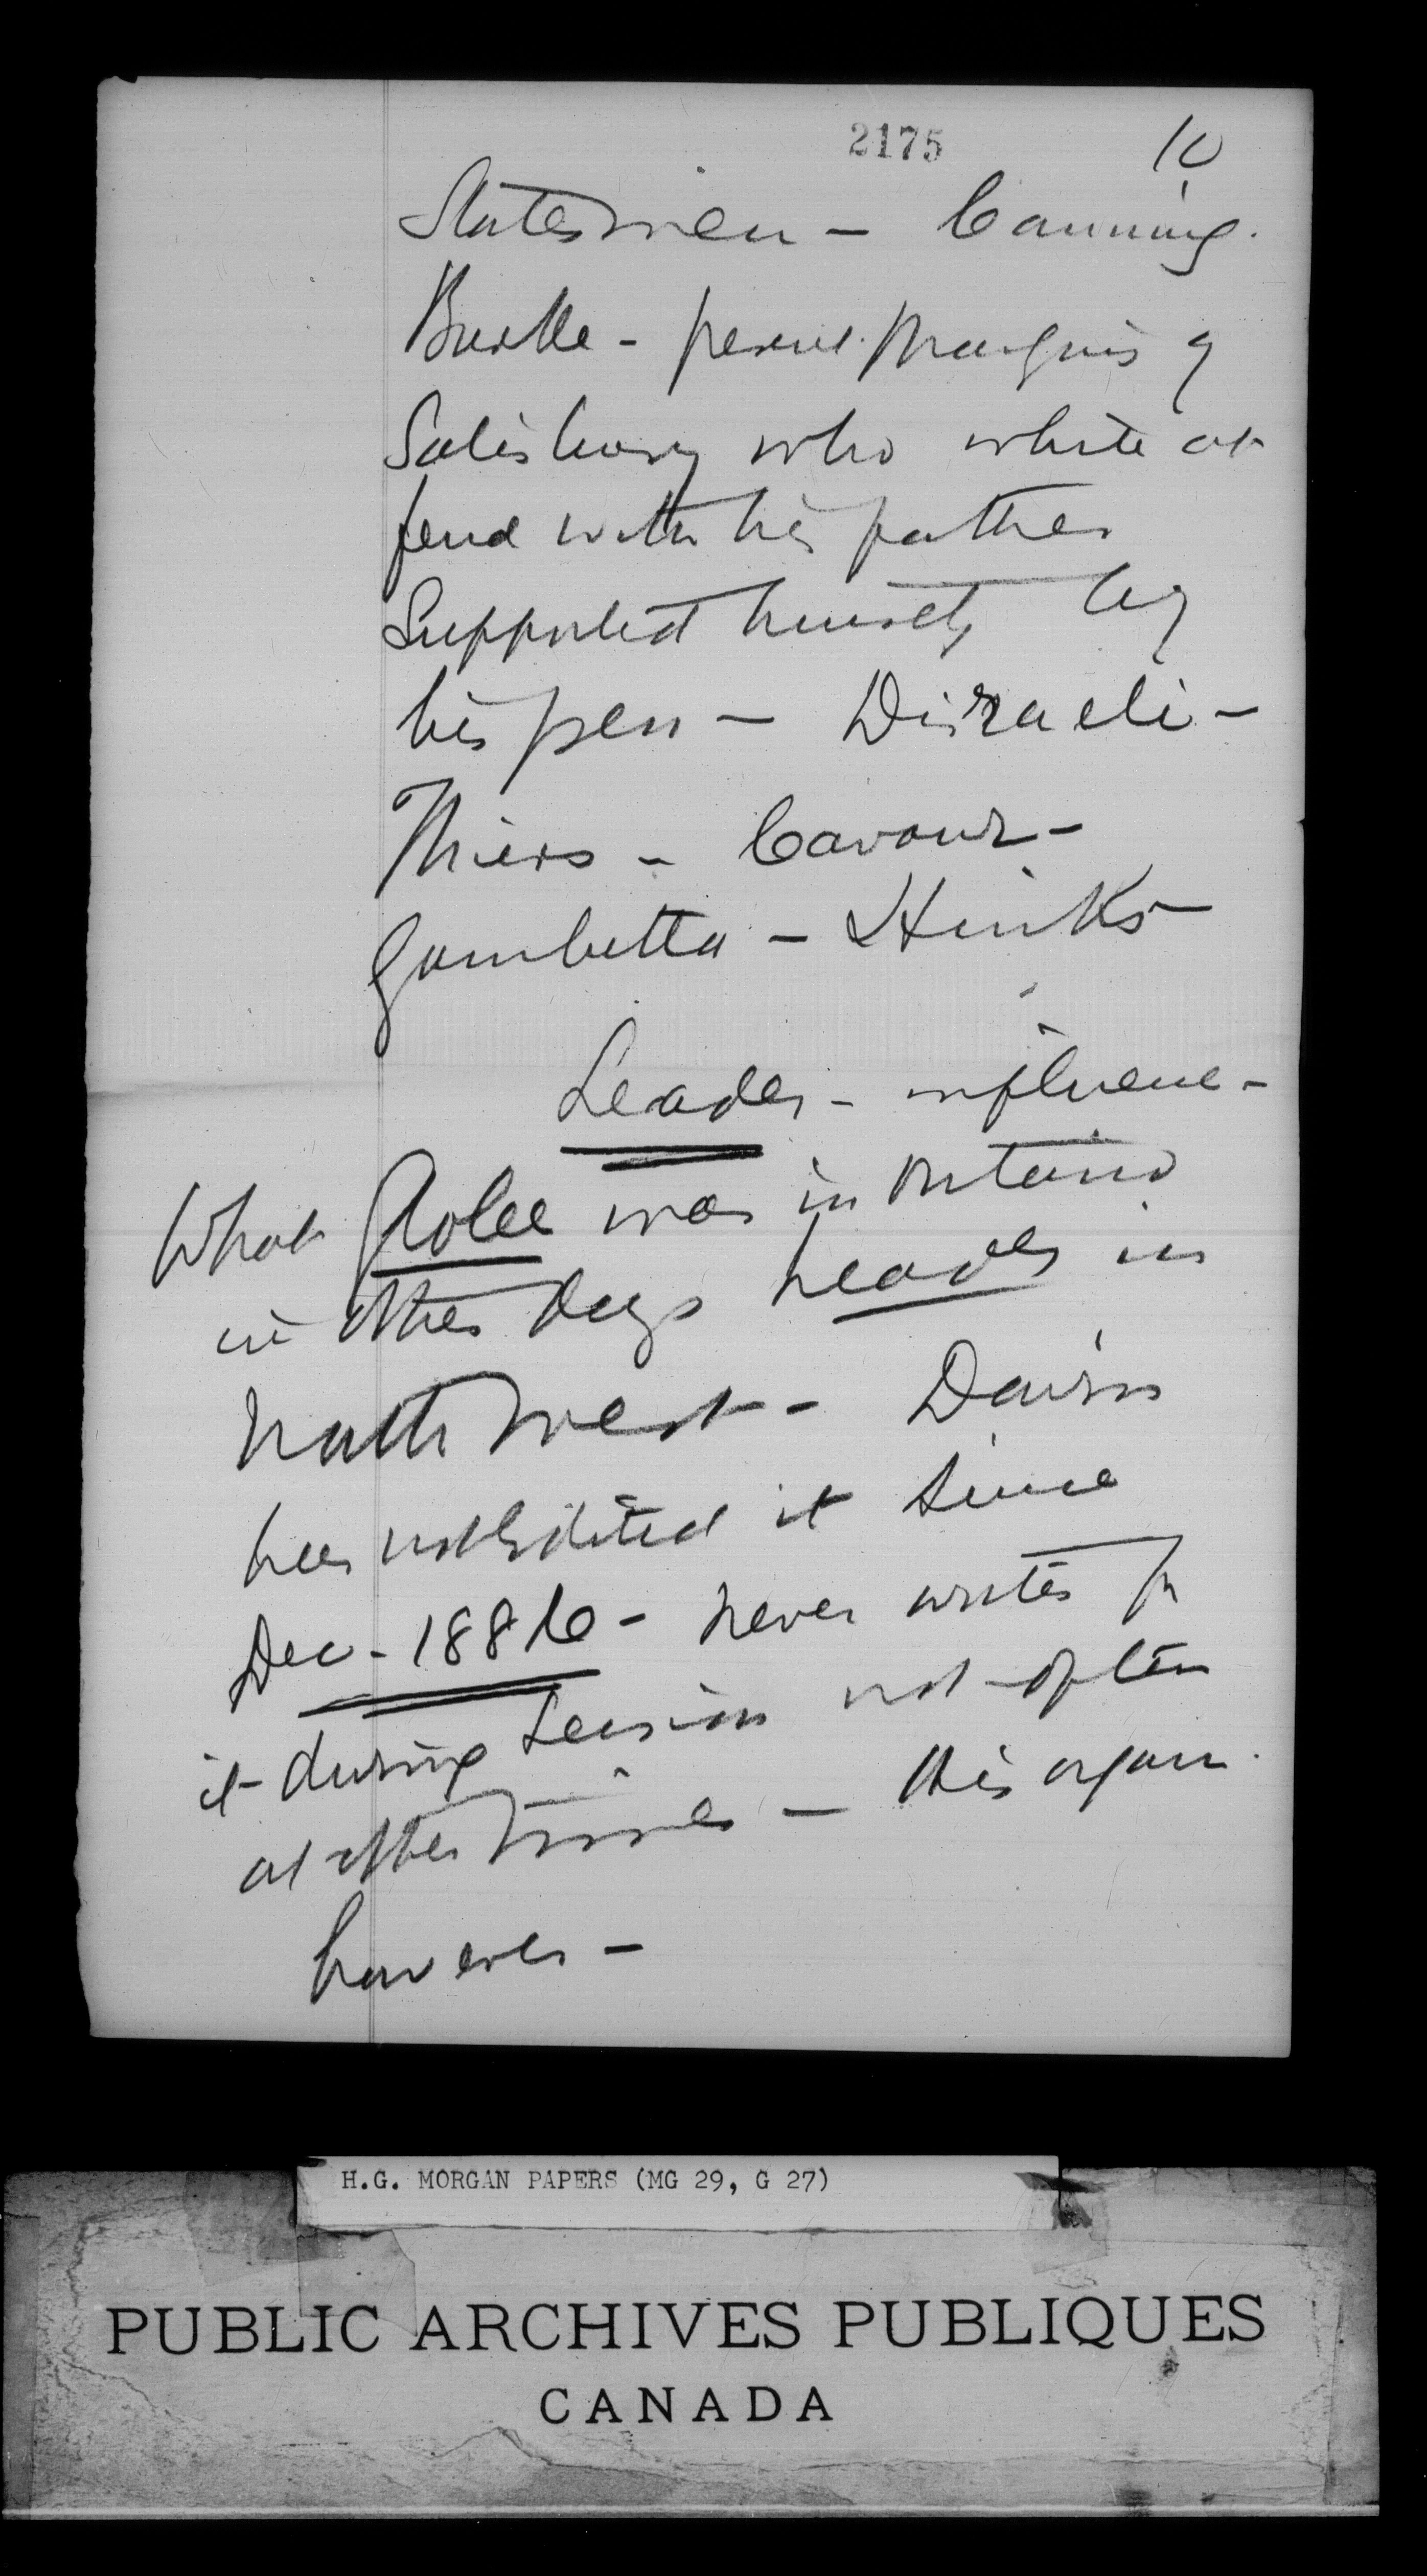 2175
10
Statesmen - Canning.
Burke - present Marquis of
Salisbury who while at
feud with his father
Supported himself by
his pen - Disraeli -
Thiers - Cavour -
Gambetta - Hinks -
Leader - influence -
What Globe was in Ontario
in other days Leader in
North West - Davin
has not Edited it since
Dec - 1886 - never writes for
it during Session not often
at other times - His organ.
however -
H.G. MORGAN PAPERS (MG 29, G 27)
PUBLIC ARCHIVES PUBLIQUES
CANADA